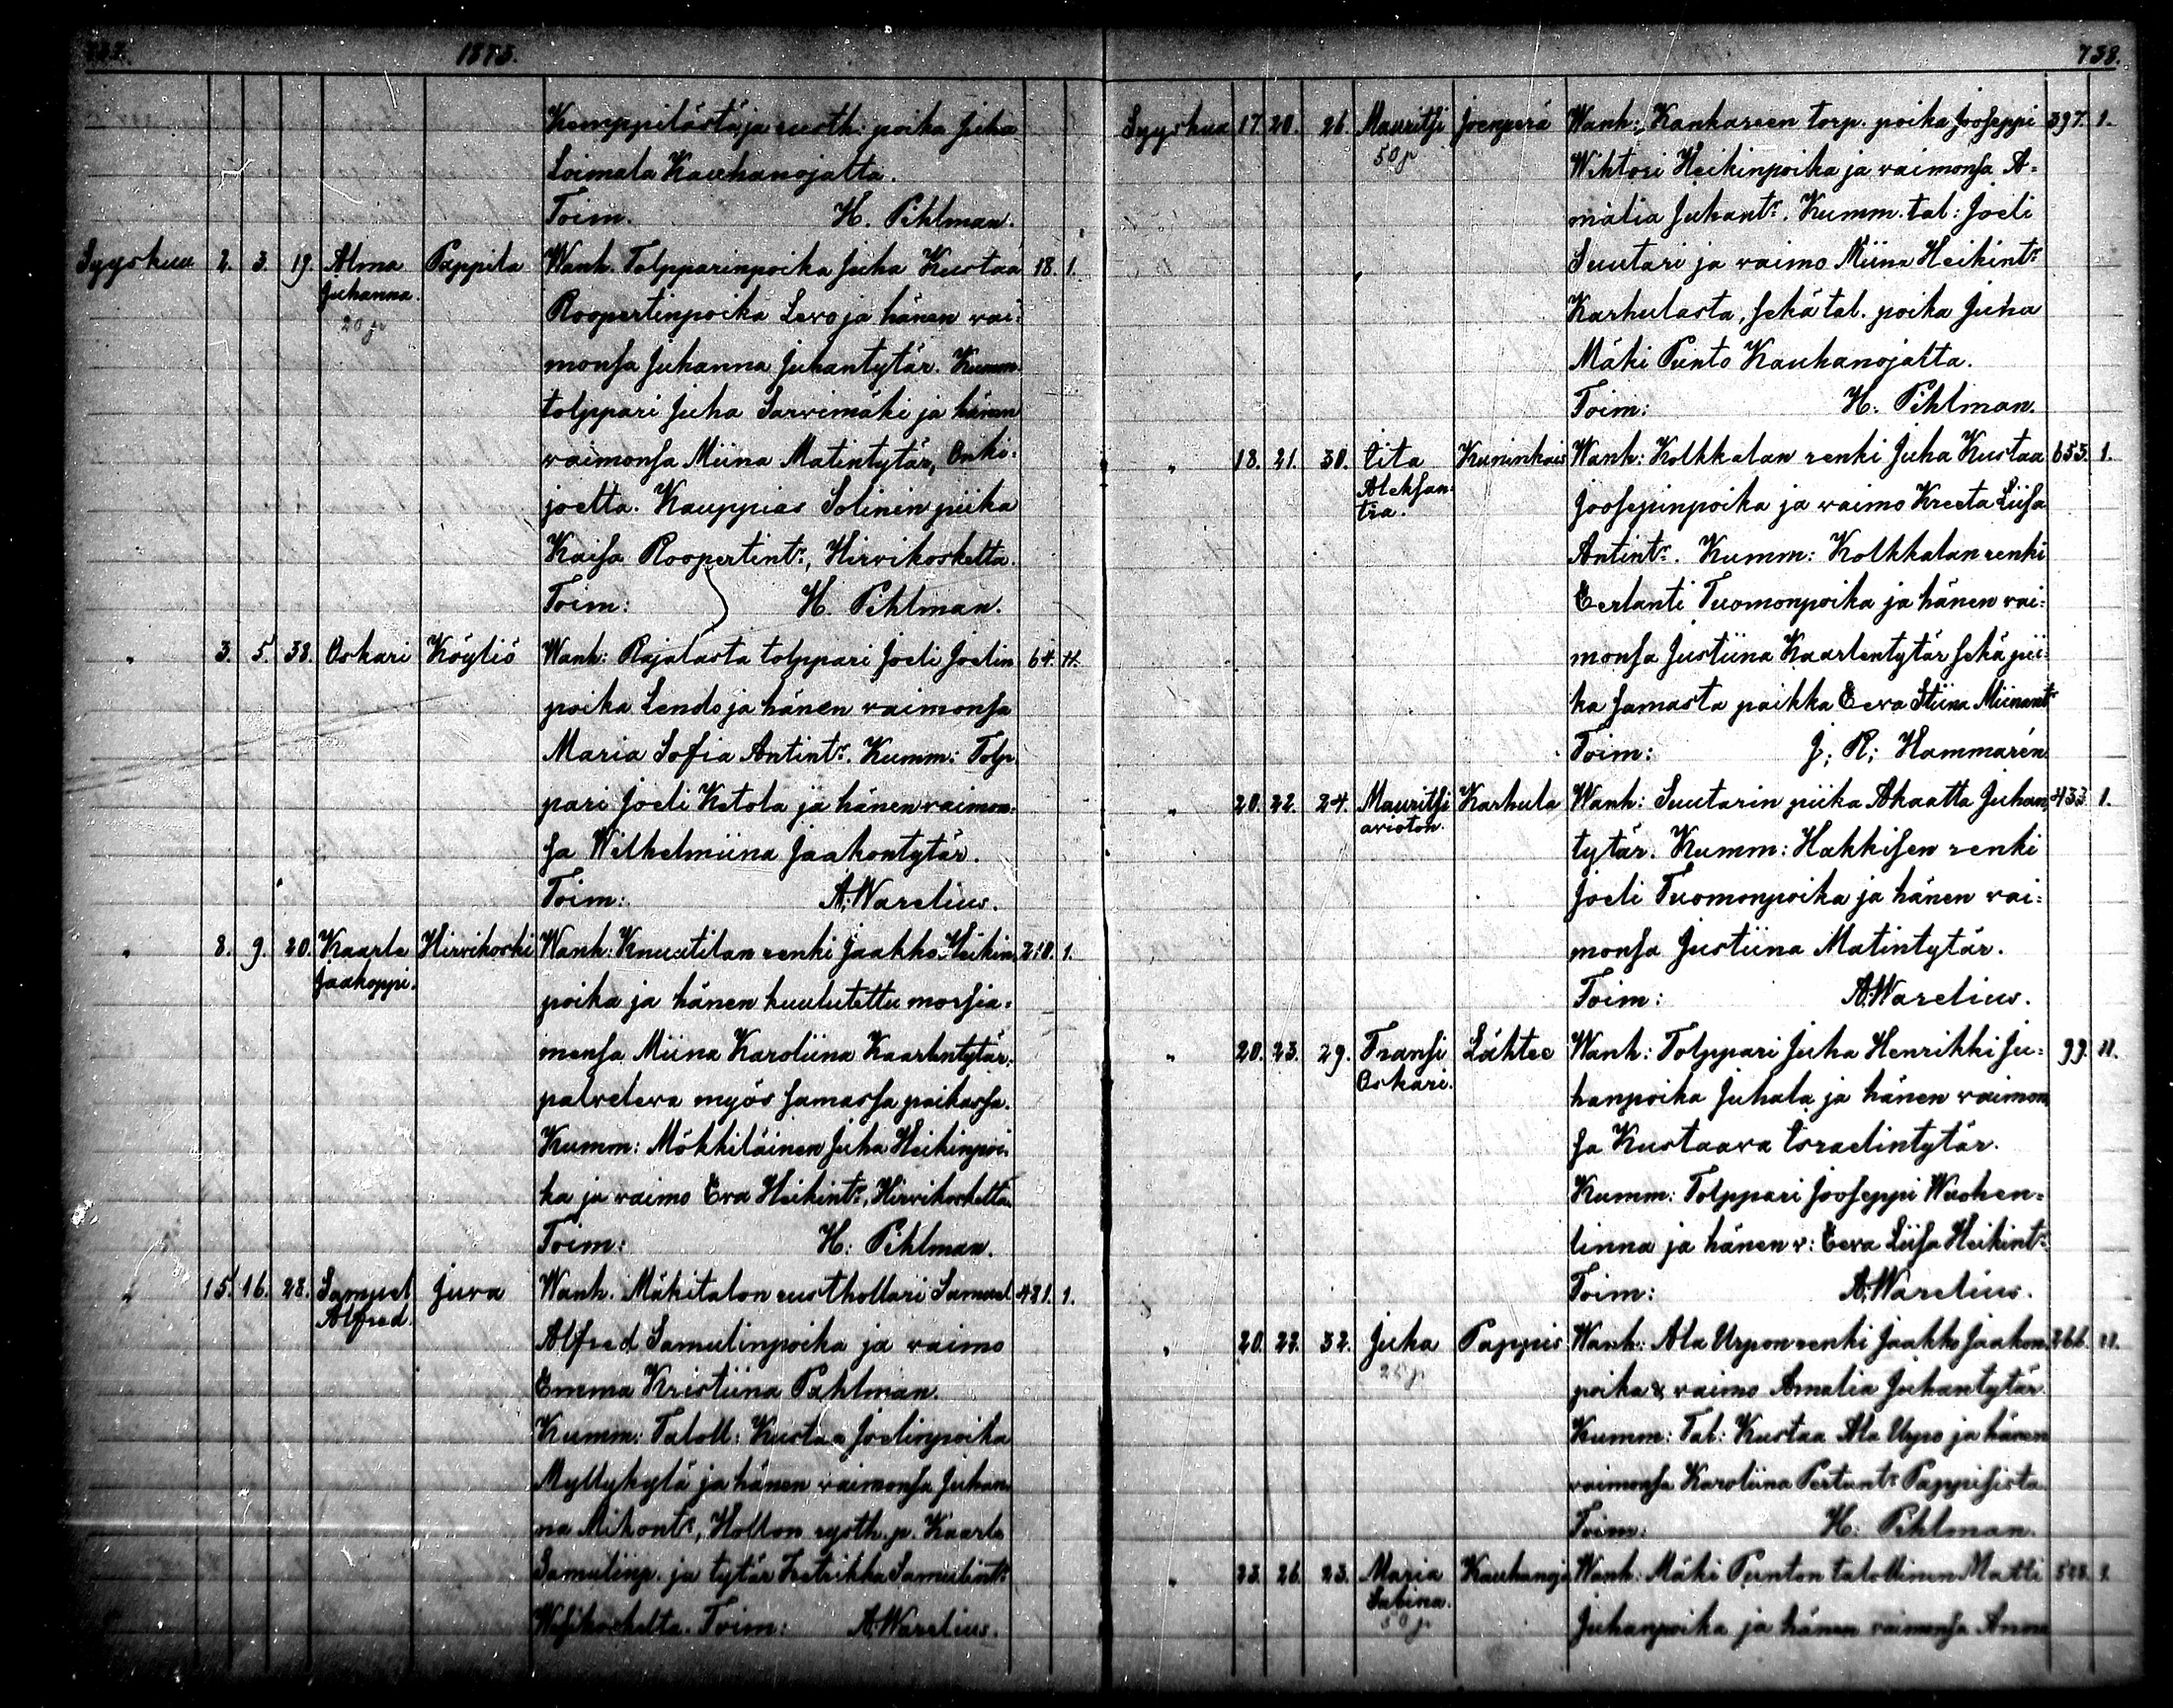 737. 1873.
Kemppilästä, ja rusth: poika Juha
Loimala Kauhanojalta.
Toim. H. Pihlman.
Syyskuu 2. 3. 19. Alma Pappila Wanh. Tolpparinpoika Juha Kustaa 18. 1.
Juhanna. Roopertinpoika Levo ja hänen vai=
20 p
monsa Juhanna Juhantytär. Kumm.
tolppari Juha Sarvimäki ja hänen
vaimonsa Miina Matintytär, Onki=
joelta. Kauppias Solinin piika
Kaisa Roopertintr, Hirvikoskelta.
Toim: H. Pihlman.
" 3. 5. 38. Oskari Köyliö Wanh: Rajalasta tolppari Joeli Joelin 64. 11.
poika Lends ja hänen vaimonsa
Maria Sofia Antintr. Kumm: Tolp
pari Joeli Ketola ja hänen vaimon=
sa Wilhelmiina Jaakontytär.
Toim: A. Warelius.
" 8. 9. 20. Kaarle Hirvikoski Wanh: Knuutilan renki Jaakko Heikin 210. 1.
Jaakoppi. poika ja hänen kuulutettu morsia=
mensa Miina Karoliina Kaarlentytär,
palveleva myös samassa paikassa.
Kumm: Mökkiläinen Juha Heikinpoi
ka ja vaimo Eva Heikintr, Hirvikoskelta.
Toim: H. Pihlman.
" 15. 16. 28. Samuel Juva Wanh. Mäkitalon rusthollari Samuel 481. 1.
Alfred. Alfred Samulinpoika ja vaimo
Emma Kristiina Pahlman.
Kumm: Taloll: Kustaa Joelinpoika
Myllykylä ja hänen vaimonsa Juhan
na Mikontr, Hollon rysth. p. Kaarle
Samulinp. ja tytär Fretrikka Samulintr
Wesikoskelta. Toim: A. Warelius.
738.
Syyskuu 17. 20. 26. Mauritsi Joenperä Wanh: Kankareen torp. poika Jooseppi 397. 1.
50 p
Wihtori Heikinpoika ja vaimonsa A=
malia Juhantr. Kumm. tal: Joeli
Suutari ja vaimo Miina Heikintr
Karhulasta, sekä tal. poika Juha
Mäki Punto Kauhanojalta.
Toim: H. Pihlman.
" 18. 21. 30. Iita Kuninkais Wanh: Kolkkalan renki Juha Kustaa 655. 1.
Aleksan= Joosepinpoika ja vaimo Kreeta Liisa
tra. Antintr. Kumm: Kolkkalan renki
Eerlanti Tuomonpoika ja hänen vai=
monsa Justiina Kaarlentytär sekä pii=
ka samasta paikka Eeva Stiina Miinantr
Toim: J. R. Hammarén
" 20. 22. 24. Mauritsi Karhula Wanh: Suutarin piika Akaatta Juhan 433. 1.
avioton. tytär. Kumm: Hakkisen renki
Joeli Tuomonpoika ja hänen vai=
monsa Justiina Matintytär.
Toim: A. Warelius.
" 20. 23. 29. Fransi Lähtee Wanh: Tolppari Juha Henrikki Ju= 99. 11.
Oskari. hanpoika Juhala ja hänen vaimon
sa Kustaava Israelintytär.
Kumm: Tolppari Jooseppi Wuohen=
linna ja hänen v: Eeva Liisa Heikintr.
Toim: A. Warelius.
" 20. 22. 32. Juha Pappis Wanh: Ala Urpon renki Jaakko Jaakon 266. 11.
25 p
poika & vaimo Amalia Juhantytär.
Kumm: Tal: Kustaa Ala Urpo ja hänen
vaimonsa Karoliina Pertuntr Pappisista
Toim: H. Pihlman.
" 23. 26. 23. Maria Kauhanoja Wanh: Mäki Punton talollinen Matti 1.
Sabina. Juhanpoika ja hänen vaimonsa Anna
50 p